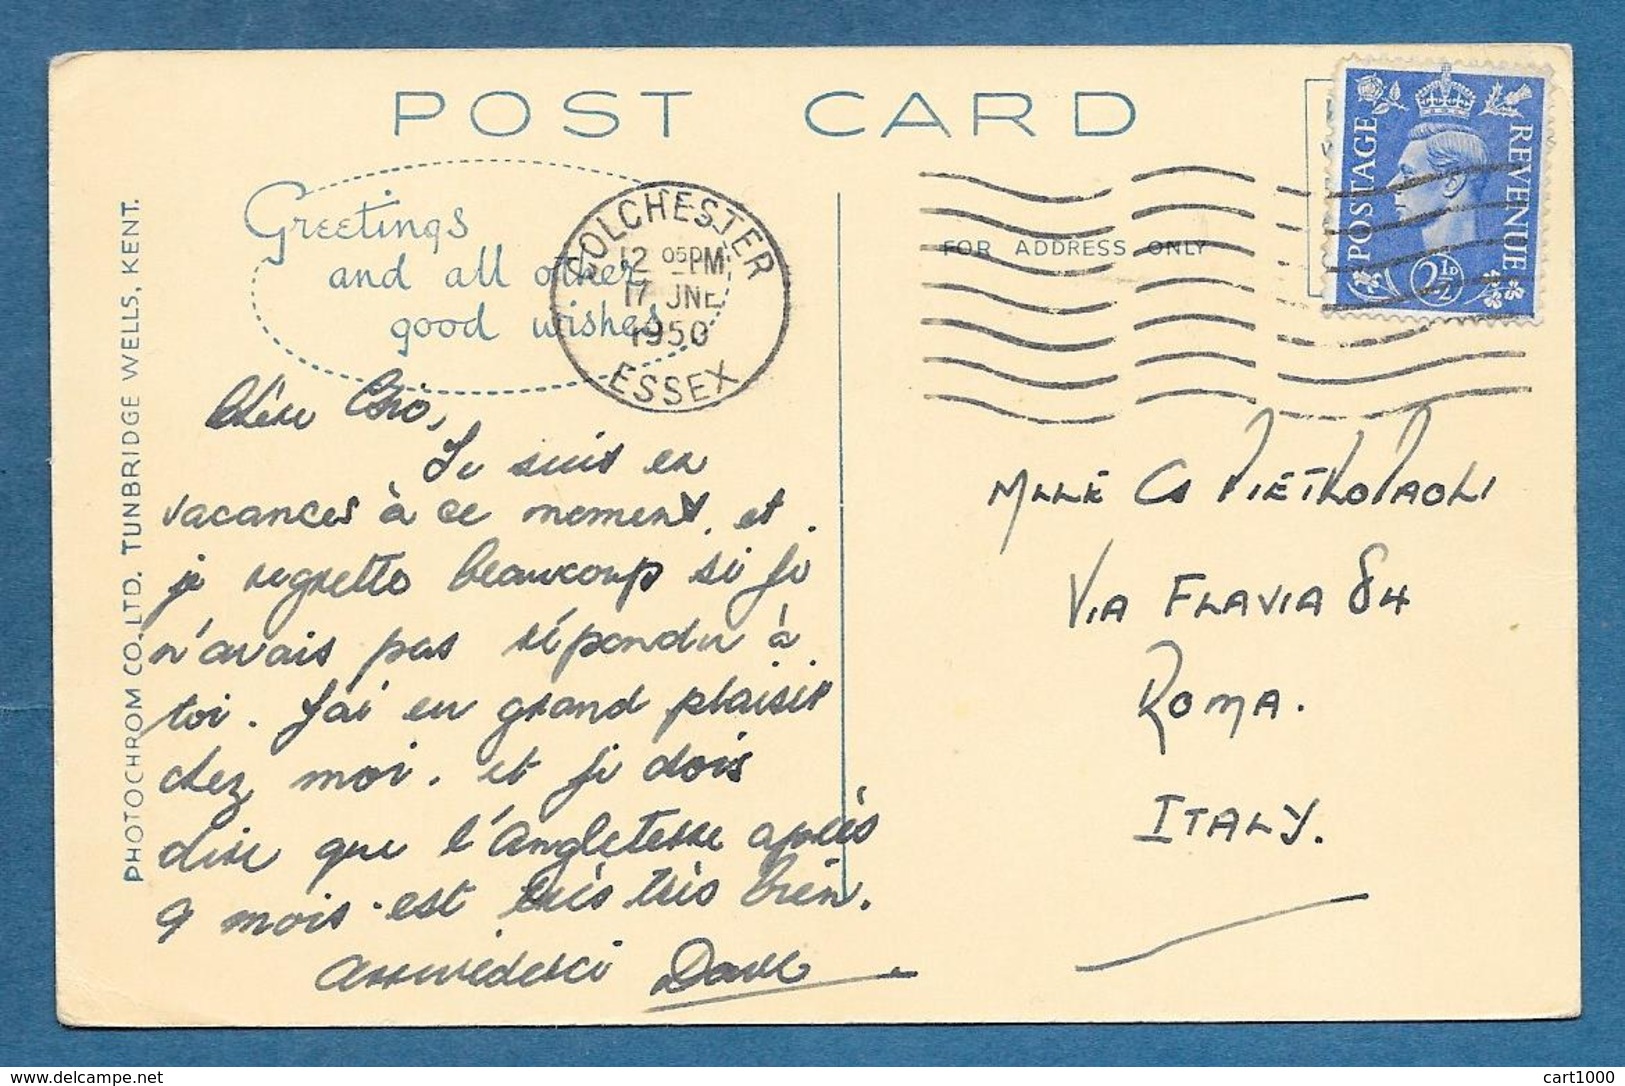 POST CARD
Greetings
and all other
good wishes
COLCHESTER
12 05 PM
17 JNE
1950
ESSEX
FOR ADDRESS ONLY
POSTAGE
REVENUE
2½D
PHOTOCHROM CO. LTD. TUNBRIDGE WELLS, KENT.
Chère Gio,
Je suis en
vacances à ce moment, et
je regrette beaucoup si je
n'avais pas répondu à
toi. J'ai eu grand plaisir
chez moi. et je dois
dire que l'Angleterre après
9 mois est très très bien.
arrivederci Dave
MLLE PIETROPAOLI
VIA FLAVIA 84
ROMA.
ITALY.
cartolinepostcards.delcampe.net
cart1000